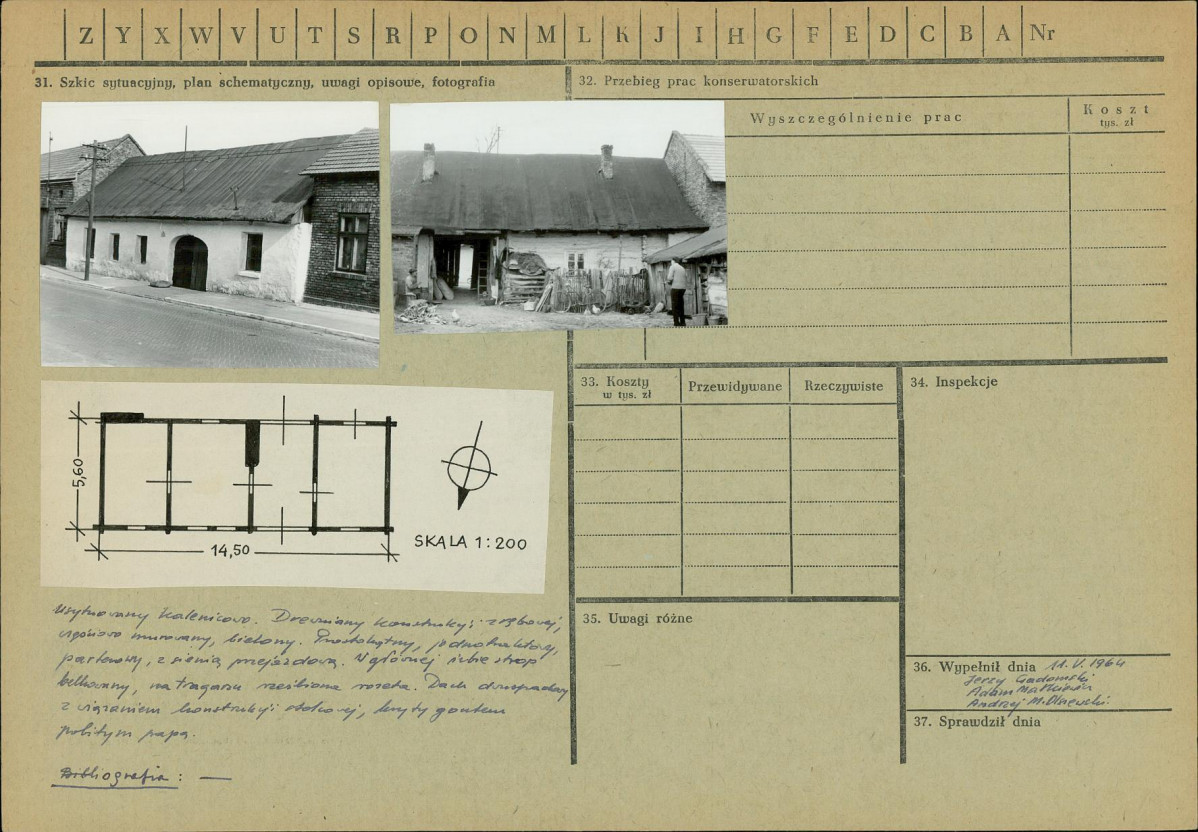 Z Y X W V U T S R P O N M L K J I H G F E D C B A Nr
31. Szkic sytuacyjny, plan schematyczny, uwagi opisowe, fotografia
5,60
14,50
SKALA 1:200
Usytuowany kalenicowo. Drewniany konstrukcji zrębowej,
częściowo murowany, bielony. Prostokątny, jednotraktowy,
parterowy, z sienią przejazdową. W głównej izbie strop
belkowany, na tragarzu rzeźbiona rozeta. Dach dwuspadowy
z wiązaniem konstrukcji stolcowej, kryty gontem
pobitym papą.
Bibliografia : —
32. Przebieg prac konserwatorskich
Wyszczególnienie prac
Koszt
tys. zł
33. Koszty
w tys. zł
Przewidywane
Rzeczywiste
34. Inspekcje
35. Uwagi różne
36. Wypełnił dnia 11.V.1964
Jerzy Gadomski
Adam Małkiewicz
Andrzej M. Olszewski
37. Sprawdził dnia